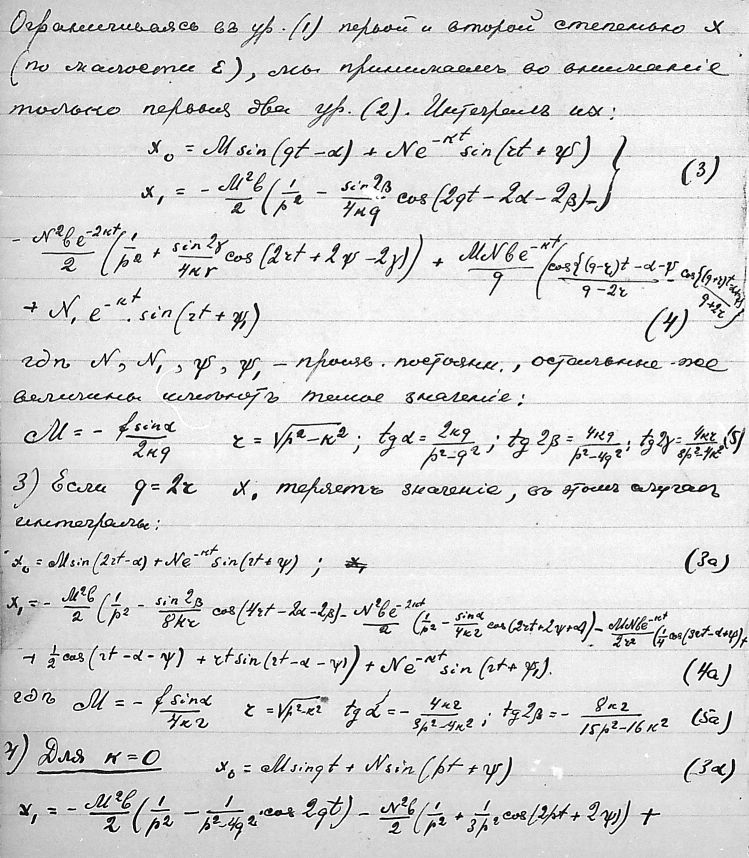 Ограничиваясь въ ур. (1) первой и второй степенью x
(по малости ε), мы принимаемъ во вниманіе
только первыя два ур. (2). Интегралъ ихъ:
x₀ = M sin(qt − α) + N e^{−κt} sin(rt + ψ) } (3)
x₁ = − M²b/2 (1/p² − sin 2β/4κq cos(2qt − 2α − 2β) −
− N²b e^{−2κt}/2 (1/p² + sin 2γ/4κr cos(2rt + 2ψ − 2γ)) + MNb e^{−κt}/q (cos{(q−r)t − α − ψ}/q−2r − cos{(q+r)t − α + ψ}/q+2r)
+ N₁ e^{−κt} sin(rt + ψ₁) (4)
гдѣ N, N₁, ψ, ψ₁ – произв. постоянн., остальные же
величины имѣютъ такое значеніе:
M = − f sin α/2κq r = √p² − κ²; tg α = 2κq/p² − q²; tg 2β = 4κq/p² − 4q²; tg 2γ = 4κr/3p² − 4κ² (5)
3) Если q = 2r x₁ теряетъ значеніе, въ этомъ случаѣ
интегралы:
x₀ = M sin(2rt − α) + N e^{−κt} sin(rt + ψ) ; x₁ (3a)
x₁ = − M²b/2 (1/p² − sin 2β/8κr cos(4rt − 2α − 2β) − N²b e^{−2κt}/2 (1/p² − sin α/4κr cos(2rt + 2ψ + α) − MNb e^{−κt}/2r² (1/4 cos(3rt − α + ψ) +
+ 1/2 cos(rt − α − ψ) + rt sin(rt − α − ψ)) + N e^{−κt} sin(rt + ψ₁). (4a)
гдѣ M = − f sin α/4κr r = √p² − κ² tg α = − 4κr/3p² − 4κ²; tg 2β = − 8κr/15p² − 16κ² (5a)
4) Для κ = 0 x₀ = M sin qt + N sin(pt + ψ) (3α)
x₁ = − M²b/2 (1/p² − 1/p² − 4q² cos 2qt) − N²b/2 (1/p² + 1/3p² cos(2pt + 2ψ)) +